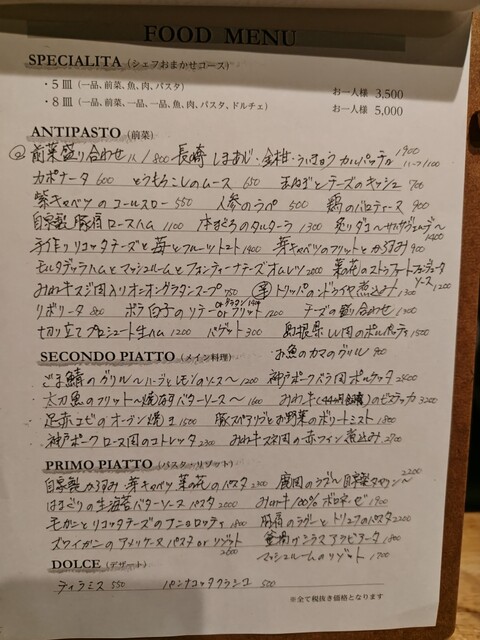 FOOD MENU
SPECIALITA (シェフおまかせコース)
・5皿 (一品、前菜、魚、肉、パスタ) お一人様 3,500
・8皿 (一品、前菜、一品、一品、魚、肉、パスタ、ドルチェ) お一人様 5,000
ANTIPASTO (前菜)
前菜盛り合わせ 長崎 しまあじ・金柑・ういきょう カルパッチョ 1900
カポナータ 600 とうもろこしのムース 650 玉ねぎとチーズのキッシュ 700
紫キャベツのコールスロー 550 人参のラペ 500 鶏のバロティーヌ 900
自家製 豚肩ロースハム 1100 本まぐろのタルターラ 1300 炙りダコ〜サルサヴェルデ〜 1400
手作りリコッタチーズと苺とフルーツトマト 1400 芽キャベツのフリットとからすみ 900
モルタデッラハムとマッシュルームとフォンティーナチーズオムレツ 2000 菜の花のストラッチャテッラ ソース 1200
みわ牛スジ肉入りオニオングラタンスープ 750 トリッパの煮込み 1300
リボリータ 800 ポテ白子のソテー or フリット 1200 チーズの盛り合せ 1300
切り立てプロシュート生ハム 1200 バゲット 300 島根県 しし肉のポルペッティ 1500
SECONDO PIATTO (メイン料理) お魚のカマのグリル 900
・ごま鯖のグリル〜ハーブとレモンのソース〜 1200 神戸ポークバラ肉ポルケッタ 2400
・太刀魚のフリット〜焼海苔バターソース〜 1600 みわ牛のビステッカ 3200
・足赤エビのオーブン焼き 1500 豚スペアリブとお野菜のボリートミスト 1800
・神戸ポークロース肉のコトレッタ 2300 みわ牛スネ肉の赤ワイン煮込み 2700
PRIMO PIATTO (パスタ・リゾット)
自家製からすみ 芽キャベツ 菜の花のパスタ 2300 鹿肉のラグー 自家製 2200
はまぐりの生海苔バターソースパスタ 2000 みわ牛100% ボロネーゼ 1900
モガニとリコッタチーズのカネロッティ 1800 豚肩のラグーとトリュフのパスタ 2200
ズワイガニのアメリケーヌパスタ or リゾット 2600 釜揚げシラスアラビアータ 1800
マッシュルームのリゾット 1700
DOLCE (デザート)
ティラミス 550 パンナコッタクラシコ 500
※全て税抜き価格となります